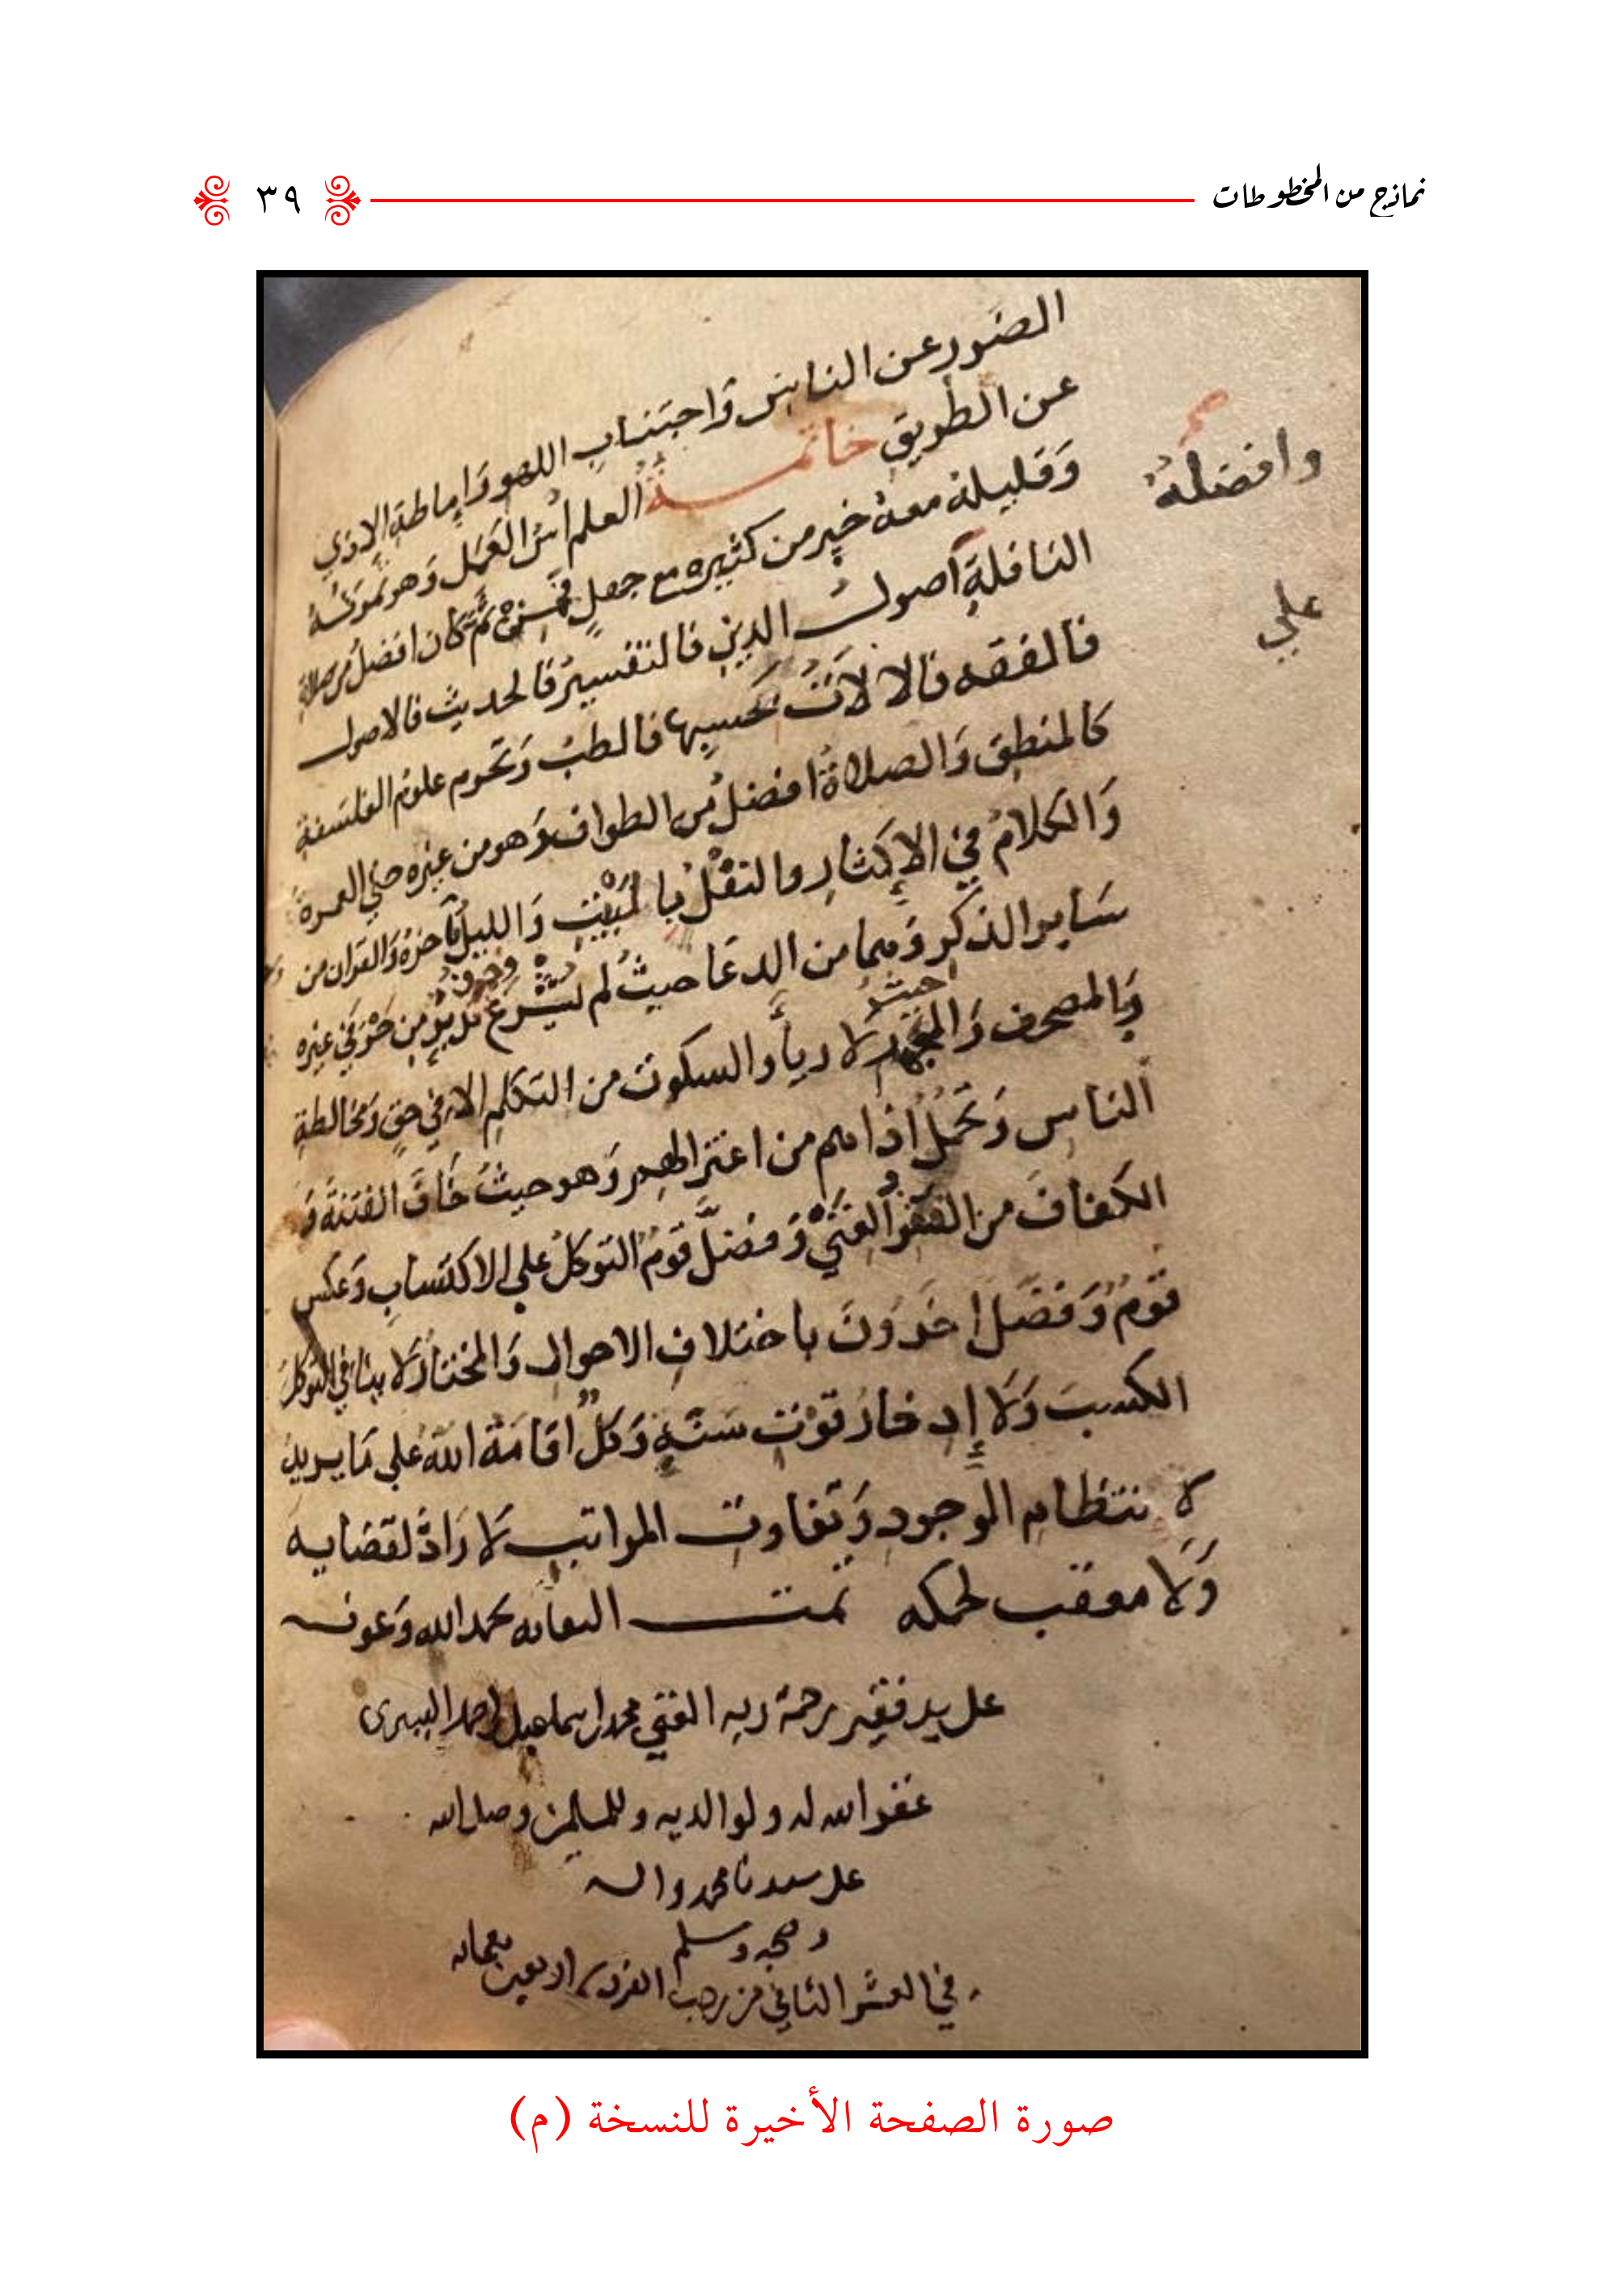 نماذج من المخطوطات
٣٩
الضور عن الناس وَاجتناب اللهو وَاماطة الاذي
عن الطريق خاتمة العلم اسُّ العَمَل وَهو ثمرته
وَقليله معهُ خير من كثيره مع جهلٍ فمن ثمَّ كان افضلُ من صلاة
وافضلهُ
النافلةِ اصول الدين فالتفسيرُ فالحديث فالاصول
علي
فالفقه فالالاتُ بحَسبِها فالطبُ وَتحرم علومُ الفلسَفة
كالمنطق وَالصلاة افضلُ من الطواف وَهو من غيره حتي العمرة
وَالكلامُ في الإكثارِ والنفلُ بالبيْتِ وَالليلُ فآخرهُ وَالقران من
سَاير الذكر وَهما من الدعَا حيثُ لم يشرع وحرف تدبر من غيره
وَالمصحف وَالجهر حيثُ لا رياً والسكوت من التكلم الا في حقٍ وَمخالطة
الناس وَتحَمُّلُ اذاهم من اعتزالهم وَهو حيثُ خَافَ الفتنةَ وَ
الكفافَ من الفقر والغني وَفضلَّ قومُ التوكل علي الاكتساب وَعكس
قومُ وَفضل اخرونَ باختلافِ الاحوال وَالمختارُ لا ينافي التوكلَ
الكسبَ وَلا إدخارُ قوْت سَنَةٍ وَكلٌّ اقامَهُ اللهُ علي مَا يريد
لانتظام الوجود وَتفاوت المراتب لا رَادَّ لقضايه
وَلا معقب لحكمه تمت النقايه بحمد الله وَعونه
علي يد فقير رحمة ربه الغني محمد اسماعيل احمد
غفر الله له ولوالديه وللمسلمين وصلي الله
علي سيدنا محمد واله
وصحبه وسلم
في العشر الثاني من رجب الفرد
صورة الصفحة الأخيرة للنسخة (م)